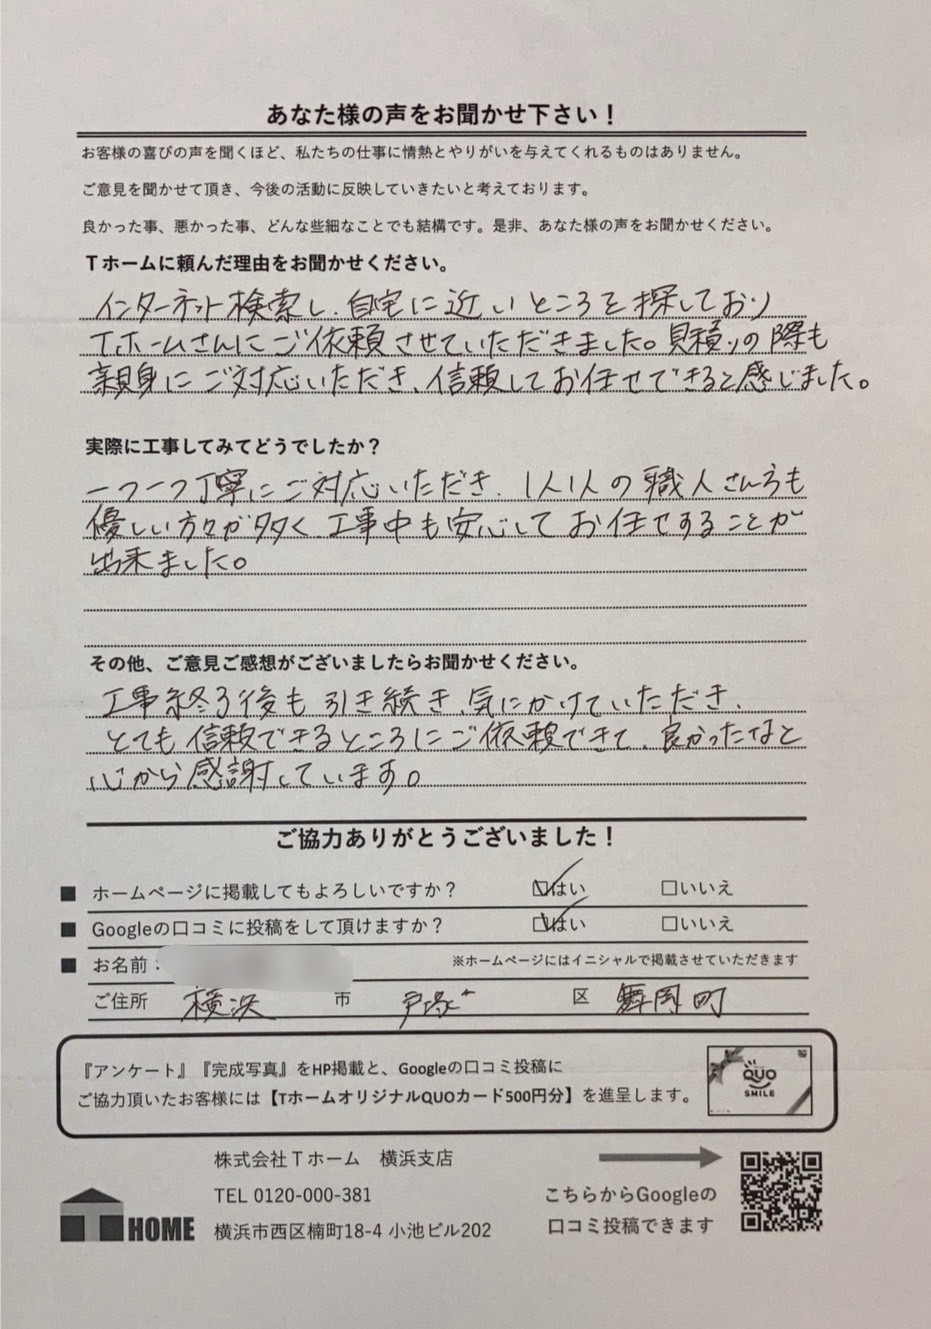 あなた様の声をお聞かせ下さい！
お客様の喜びの声を聞くほど、私たちの仕事に情熱とやりがいを与えてくれるものはありません。
ご意見を聞かせて頂き、今後の活動に反映していきたいと考えております。
良かった事、悪かった事、どんな些細なことでも結構です。是非、あなた様の声をお聞かせください。
Ｔホームに頼んだ理由をお聞かせください。
インターネット検索し、自宅に近いところを探しており
Tホームさんにご依頼させていただきました。見積りの際も
親身にご対応いただき、信頼してお任せできると感じました。
実際に工事してみてどうでしたか？
一つ一つ丁寧にご対応いただき、1人1人の職人さん方も
優しい方々が多く、工事中も安心してお任せすることが
出来ました。
その他、ご意見ご感想がございましたらお聞かせください。
工事終了後も引き続き、気にかけていただき、
とても信頼できるところにご依頼できて、良かったなと
心から感謝しています。
ご協力ありがとうございました！
■ ホームページに掲載してもよろしいですか？ ☑はい □いいえ
■ Googleの口コミに投稿をして頂けますか？ ☑はい □いいえ
■ お名前： ※ホームページにはイニシャルで掲載させていただきます
ご住所 横浜 市 戸塚 区 舞岡町
『アンケート』『完成写真』をHP掲載と、Googleの口コミ投稿に
ご協力頂いたお客様には【TホームオリジナルQUOカード500円分】を進呈します。
QUO
SMILE
株式会社Ｔホーム 横浜支店
TEL 0120-000-381
横浜市西区楠町18-4 小池ビル202
T HOME
こちらからGoogleの
口コミ投稿できます